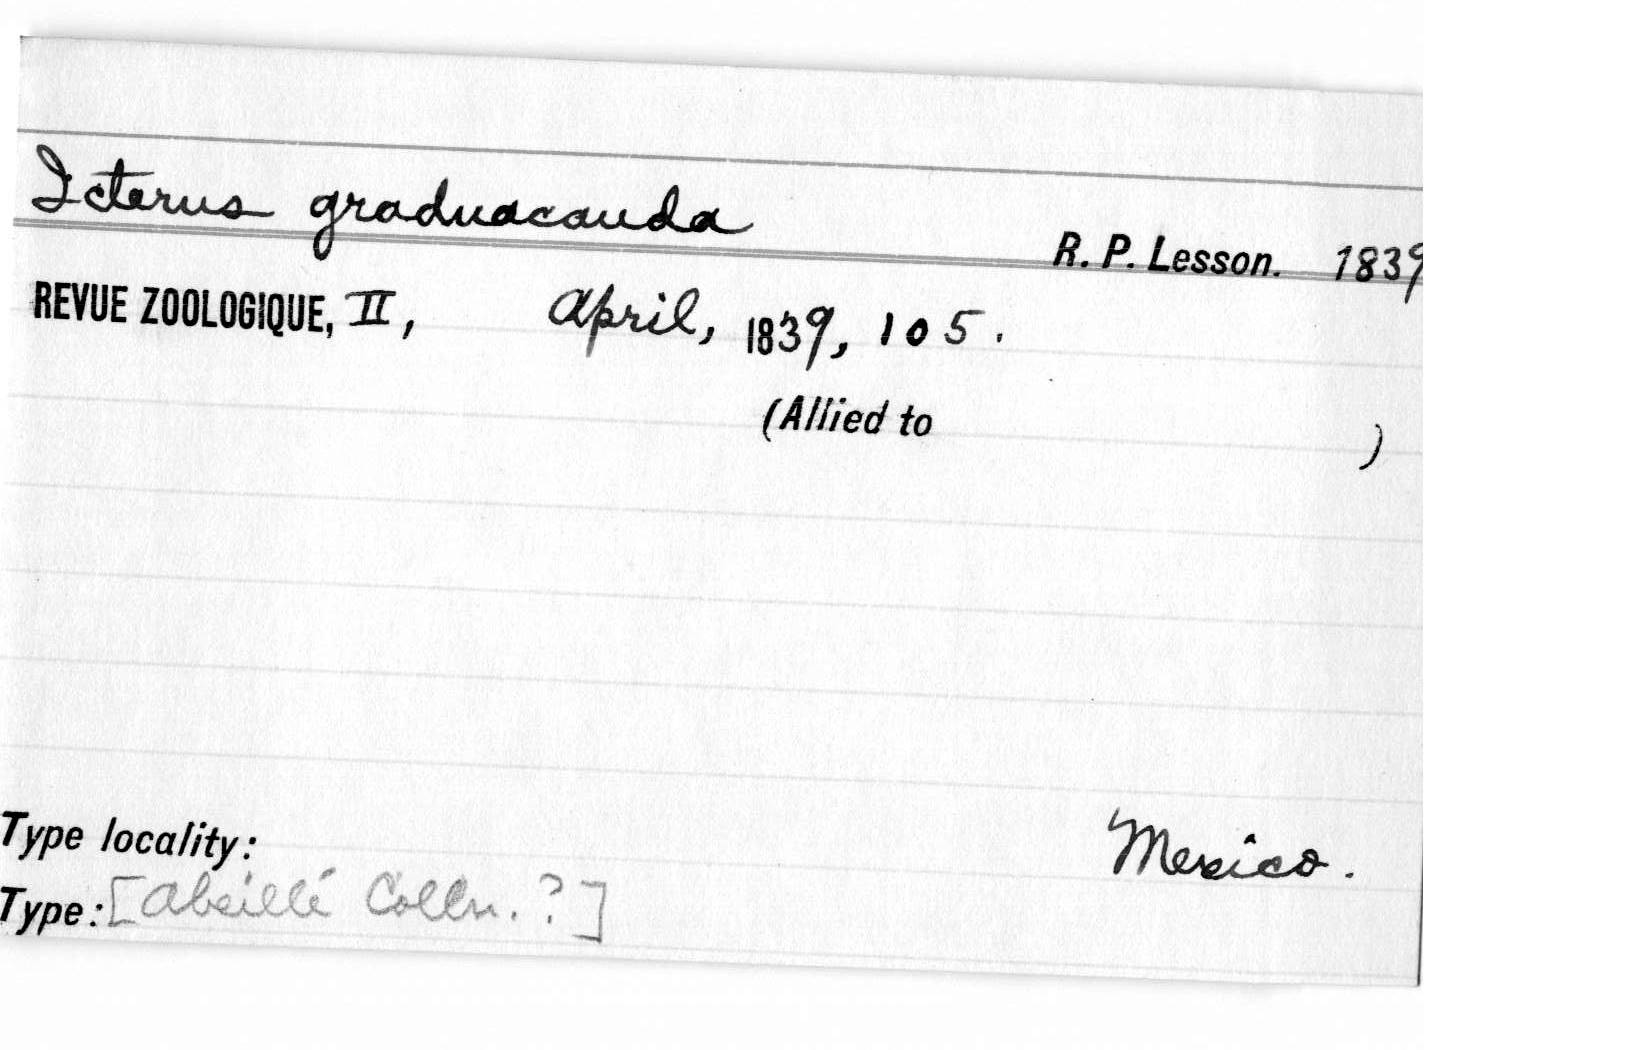 Icterus graduacauda
R. P. Lesson. 1839
REVUE ZOOLOGIQUE, II, April, 1839, 105.
(Allied to )
Type locality: Mexico.
Type: [Abeillé Colln. ?]